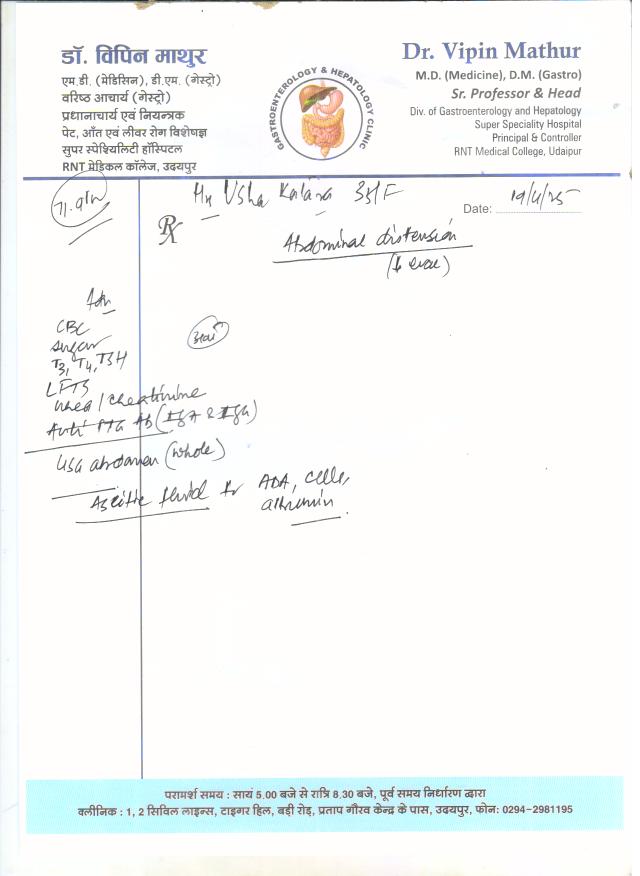 डॉ. विपिन माथुर
एम.डी. (मेडिसिन), डी.एम. (गेस्ट्रो)
वरिष्ठ आचार्य (गेस्ट्रो)
प्रधानाचार्य एवं नियन्त्रक
पेट, आँत एवं लीवर रोग विशेषज्ञ
सुपर स्पेश्यिलिटी हॉस्पिटल
RNT मेडिकल कॉलेज, उदयपुर
GASTROENTEROLOGY & HEPATOLOGY CLINIC
Dr. Vipin Mathur
M.D. (Medicine), D.M. (Gastro)
Sr. Professor & Head
Div. of Gastroenterology and Hepatology
Super Speciality Hospital
Principal & Controller
RNT Medical College, Udaipur
Usha 35/F
Date: 19/4/25
Rx
Abdominal distension
Adv
CBC
sugar
T3, T4, TSH
LFTS
urea / creatinine
Anti TTG Ab (IgA & IgG)
USG abdomen (whole)
Ascitic fluid for ADA, cells,
albumin.
परामर्श समय : सायं 5.00 बजे से रात्रि 8.30 बजे, पूर्व समय निर्धारण द्वारा
क्लीनिक : 1, 2 सिविल लाइन्स, टाइगर हिल, बड़ी रोड़, प्रताप गौरव केन्द्र के पास, उदयपुर, फोन: 0294-2981195